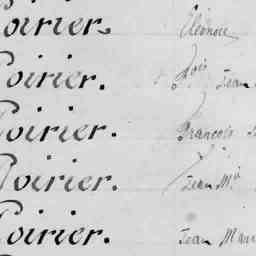 Poirier. Eléonore
Poirier. Jean
Poirier. François
Poirier. Jean M.ie
Poirier. Jean Mari